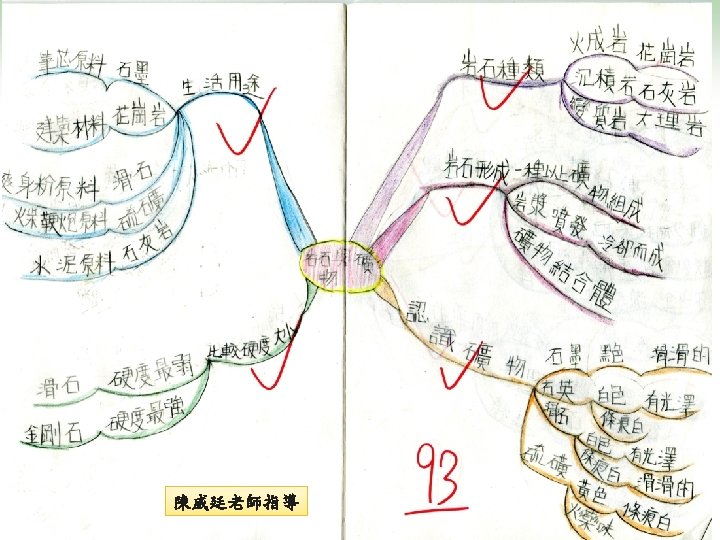 岩石與礦物
岩石種類
火成岩 花崗岩
沉積岩 石灰岩
變質岩 大理岩
岩石形成
一種以上礦物組成
岩漿噴發 冷卻而成
礦物結合體
認識礦物
石墨 黑色 滑滑的
石英 白色 有光澤
條痕白
滑石 白色 有光澤
條痕白 滑滑的
硫礦 黃色 條痕白
火藥味
生活用途
石墨 筆芯原料
花崗岩 建築材料
滑石 爽身粉原料
硫礦 火柴鞭炮原料
石灰岩 水泥原料
比較硬度大小
滑石 硬度最弱
金剛石 硬度最強
93
陳威廷老師指導